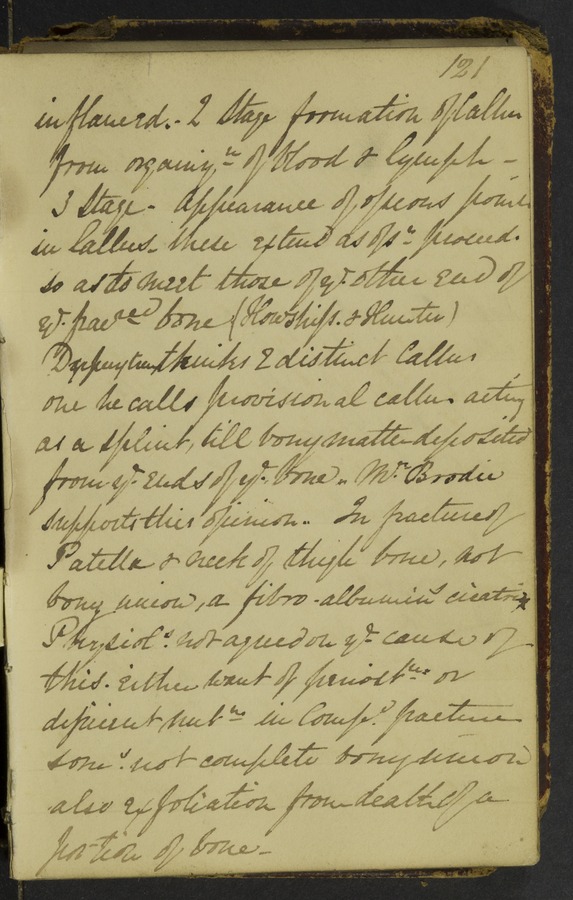 121
inflamed. - 2 Stage formation of Callus
from organizn of blood & lymph -
3 Stage - Appearance of osseous points
in Callus - these extend as ossn proceed.
so as to meet those of yt other end of
yt fracred bone (Howship. & Hunter)
Dupuytren thinks 2 distinct Callus
one he calls provisional callus acting
as a splint, till bony matter deposited
from yt ends of yt bone. Mr Brodie
supports this opinion. In fracture of
Patella & neck of thigh bone, not
bony union, a fibro-albumins cicatrix
Physiols not agreed on yt cause of
this. Either want of periostms or
deficient nutn in Compd fracture
soms not complete bony union
also exfoliation from death of a
portion of bone -